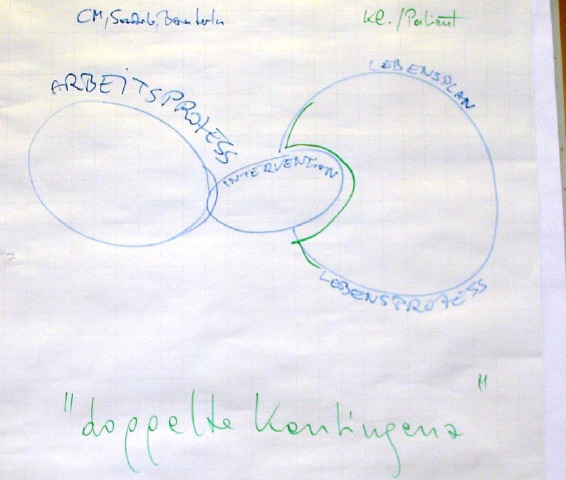 CM, Sozarb, Beraterln
Kl./Patient
ARBEITSPROZESS
LEBENSPLAN
INTERVENTION
LEBENSPROZESS
"doppelte Kontingenz"